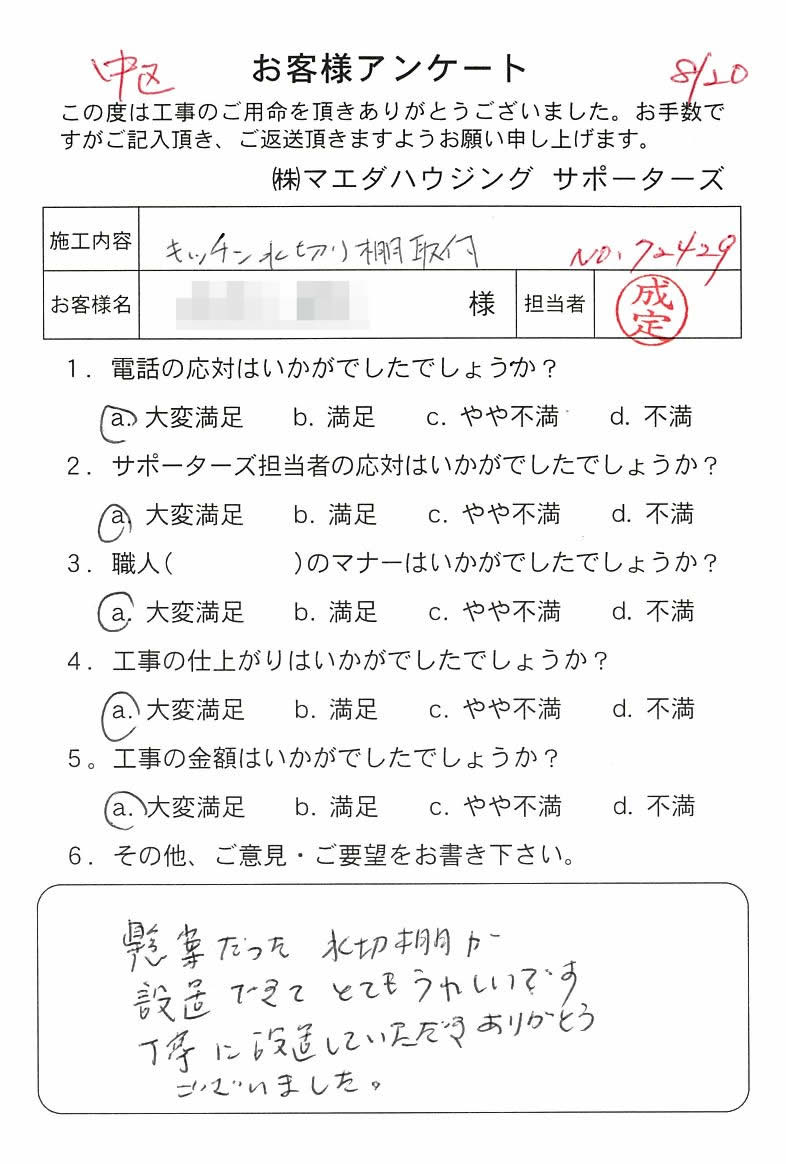 中区 お客様アンケート 8/20
この度は工事のご用命を頂きありがとうございました。お手数で
すがご記入頂き、ご返送頂きますようお願い申し上げます。
㈱マエダハウジング サポーターズ
施工内容 キッチン水切り棚取付 NO.72429
お客様名 様 担当者 成定
1. 電話の応対はいかがでしたでしょうか？
a. 大変満足 b. 満足 c. やや不満 d. 不満
2. サポーターズ担当者の応対はいかがでしたでしょうか？
a. 大変満足 b. 満足 c. やや不満 d. 不満
3. 職人( )のマナーはいかがでしたでしょうか？
a. 大変満足 b. 満足 c. やや不満 d. 不満
4. 工事の仕上がりはいかがでしたでしょうか？
a. 大変満足 b. 満足 c. やや不満 d. 不満
5。工事の金額はいかがでしたでしょうか？
a. 大変満足 b. 満足 c. やや不満 d. 不満
6. その他、ご意見・ご要望をお書き下さい。
懸案だった 水切棚が
設置できて とてもうれしいです
丁寧に設置していただきありがとう
ございました。